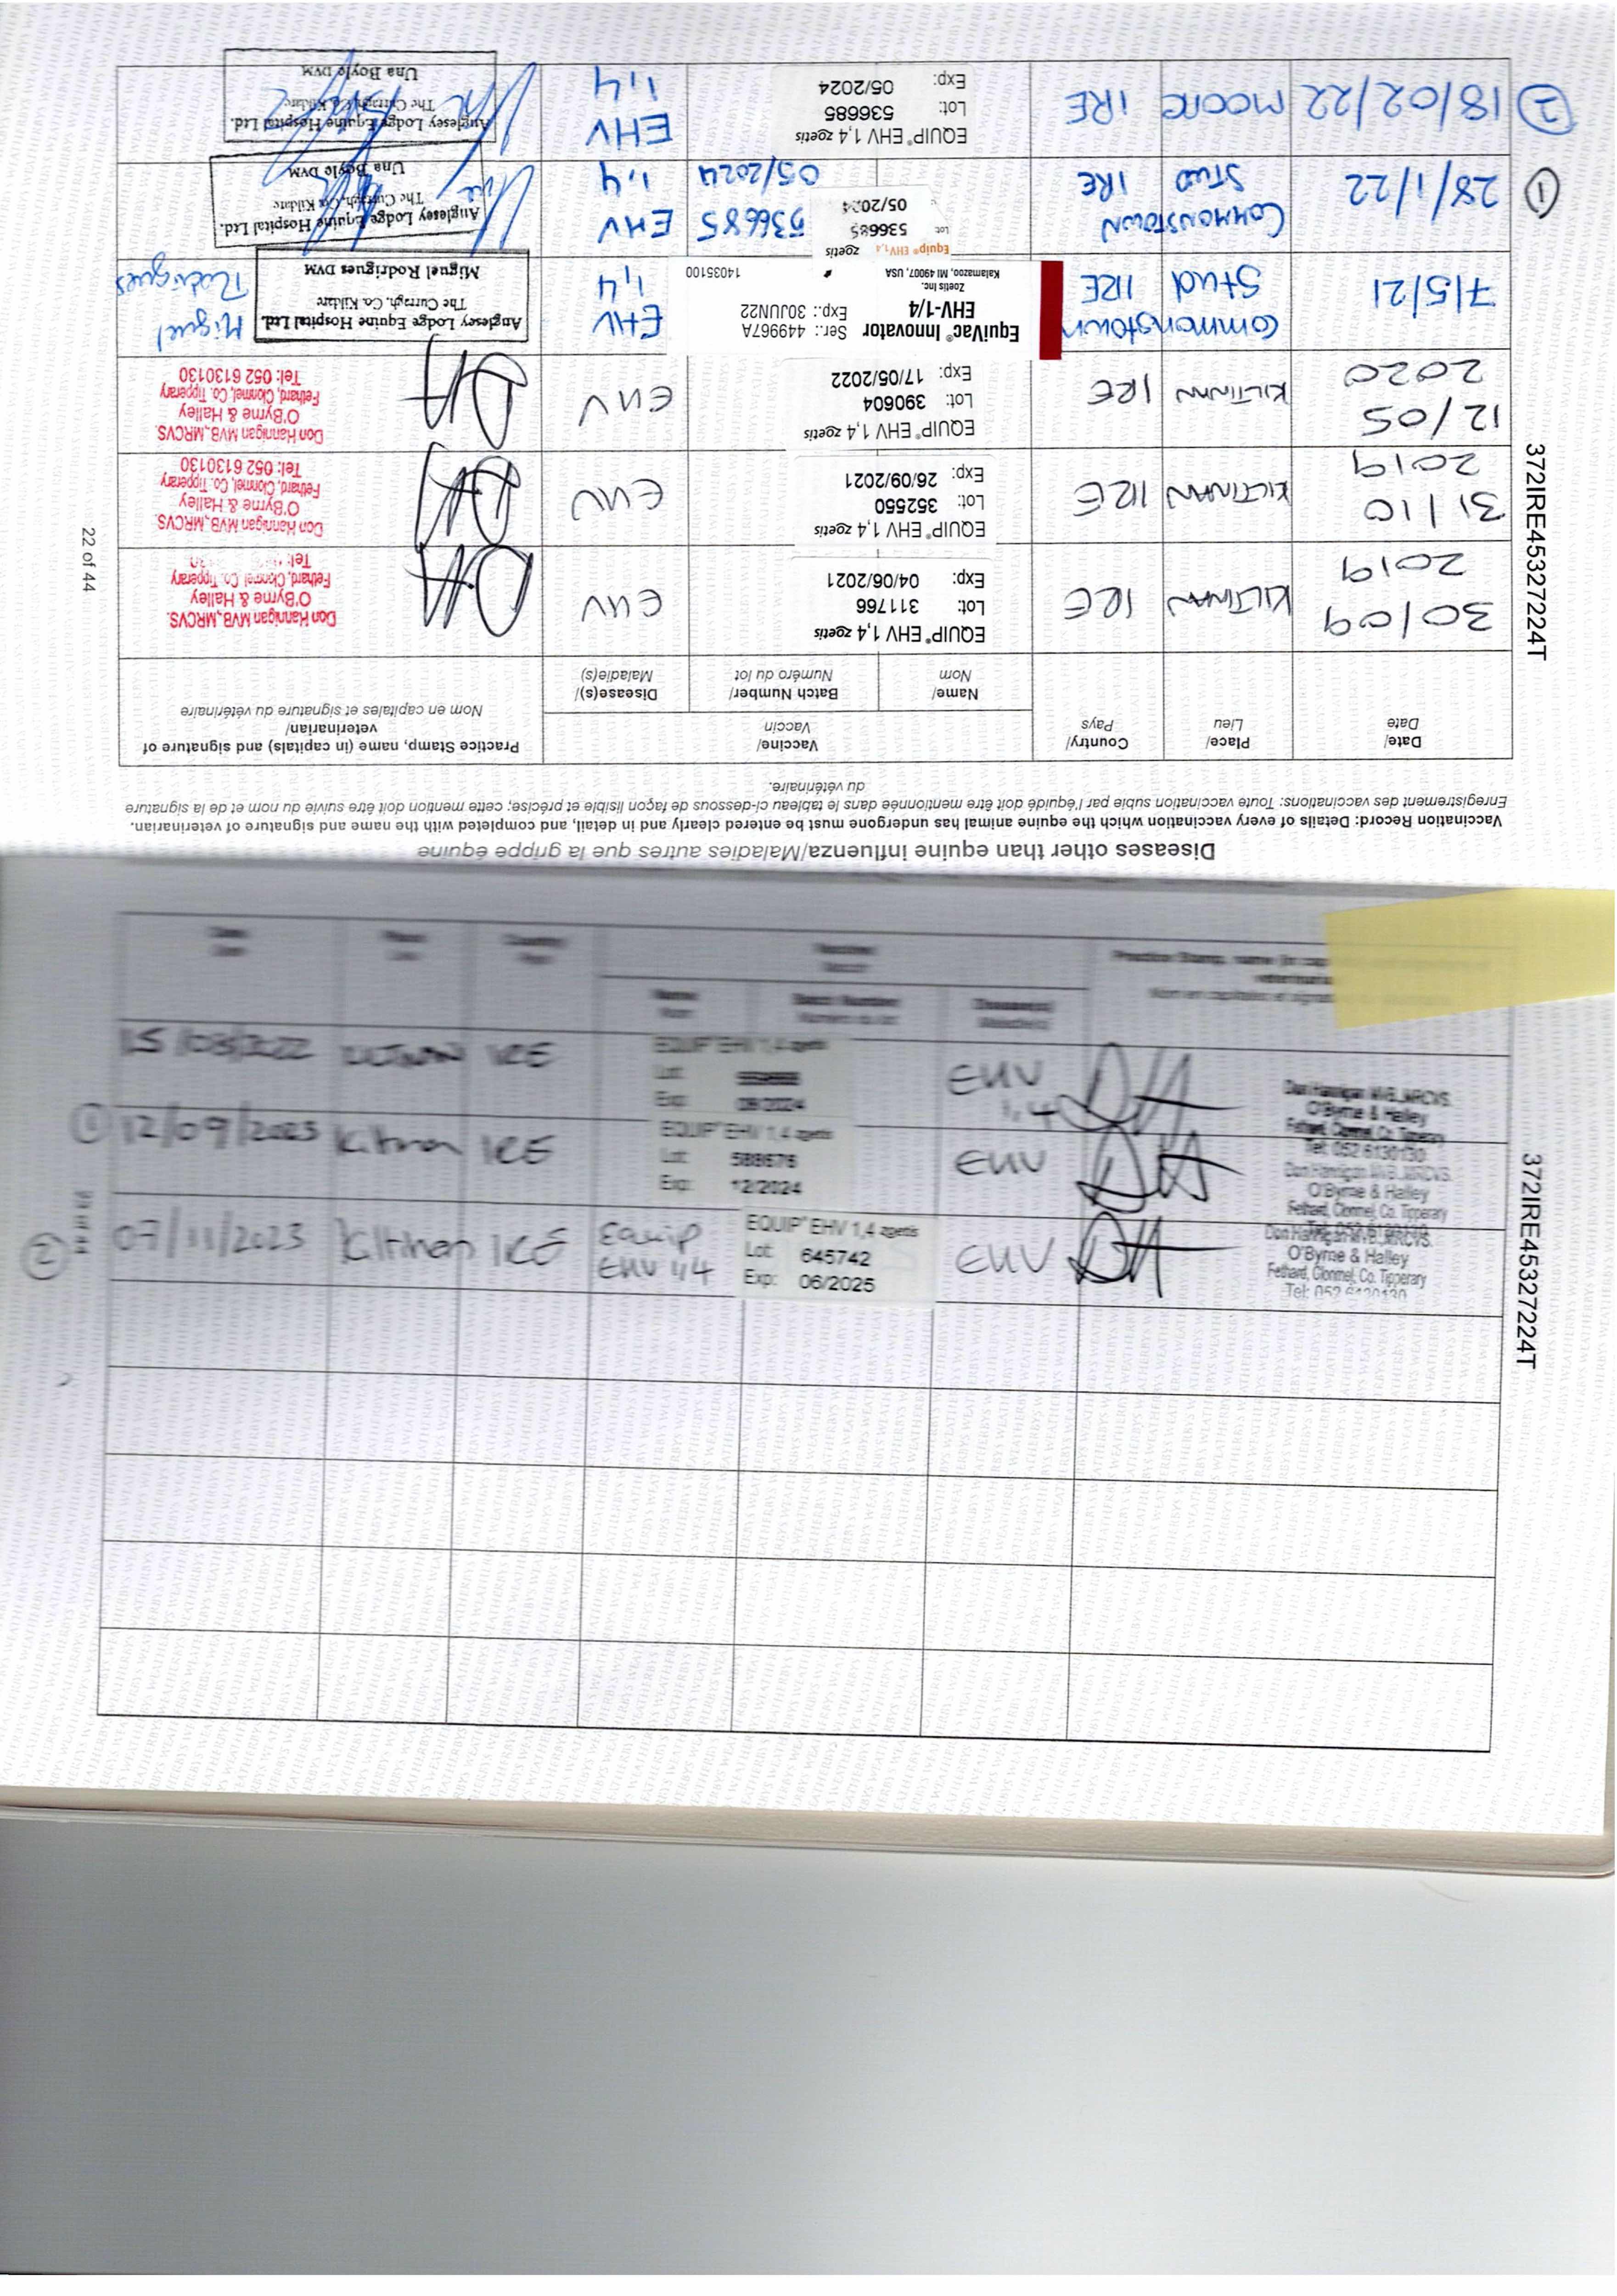 Diseases other than equine influenza/Maladies autres que la grippe équine
Vaccination Record: Details of every vaccination which the equine animal has undergone must be entered clearly and in detail, and completed with the name and signature of veterinarian.
Enregistrement des vaccinations: Toute vaccination subie par l'équidé doit être mentionnée dans le tableau ci-dessous de façon lisible et précise; cette mention doit être suivie du nom et de la signature
du vétérinaire.
Date/
Date
Place/
Lieu
Country/
Pays
Vaccine/
Vaccin
Name/
Nom
Batch Number/
Numéro du lot
Disease(s)/
Maladie(s)
Practice Stamp, name (in capitals) and signature of
veterinarian/
Nom en capitales et signature du vétérinaire
30/09
2019
KILTINAN
IRE
EQUIP® EHV 1,4 zoetis
Lot: 311766
Exp: 04/06/2021
EHV
Don Hannigan MVB, MRCVS.
O'Byrne & Halley
Fethard, Clonmel, Co. Tipperary
Tel:
31/10
2019
KILTINAN
IRE
EQUIP® EHV 1,4 zoetis
Lot: 352550
Exp: 26/09/2021
EHV
Don Hannigan MVB, MRCVS.
O'Byrne & Halley
Fethard, Clonmel, Co. Tipperary
Tel: 052 6130130
12/05
2020
KILTINAN
IRE
EQUIP® EHV 1,4 zoetis
Lot: 390604
Exp: 17/05/2022
EHV
Don Hannigan MVB, MRCVS.
O'Byrne & Halley
Fethard, Clonmel, Co. Tipperary
Tel: 052 6130130
7/5/21
Commonstown
Stud
IRE
EquiVac® Innovator
EHV-1/4
Zoetis Inc.
Kalamazoo, MI 49007, USA
Ser.: 449967A
Exp.: 30JUN22
14035100
EHV
1,4
Anglesey Lodge Equine Hospital Ltd.
The Curragh, Co. Kildare
Miguel Rodrigues DVM
Miguel
Rodrigues
1
28/1/22
Commonstown
Stud
IRE
Equip® EHV 1,4 zoetis
Lot: 536685
05/2024
536685
05/2024
EHV
1,4
Anglesey Lodge Equine Hospital Ltd.
The Curragh, Co. Kildare
Una Boyle DVM
2
18/02/22
MOONE
IRE
EQUIP® EHV 1,4 zoetis
Lot: 536685
Exp: 05/2024
EHV
1,4
Anglesey Lodge Equine Hospital Ltd.
The Curragh, Co. Kildare
Una Boyle DVM
22 of 44
372IRE45327224T
15/08/2022
KILTINAN
IRE
EQUIP® EHV 1,4 zoetis
Lot:
Exp: 08/2024
EHV
1,4
Don Hannigan MVB, MRCVS.
O'Byrne & Halley
Fethard, Clonmel, Co. Tipperary
Tel: 052 6130130
1
12/09/2023
Kiltinan
IRE
EQUIP® EHV 1,4 zoetis
Lot: 588676
Exp: 12/2024
EHV
Don Hannigan MVB, MRCVS.
O'Byrne & Halley
Fethard, Clonmel, Co. Tipperary
2
07/11/2023
Kiltinan
IRE
Equip
EHV 1,4
EQUIP® EHV 1,4 zoetis
Lot: 645742
Exp: 06/2025
EHV
Don Hannigan MVB, MRCVS.
O'Byrne & Halley
Fethard, Clonmel, Co. Tipperary
Tel: 052 6130130
372IRE45327224T